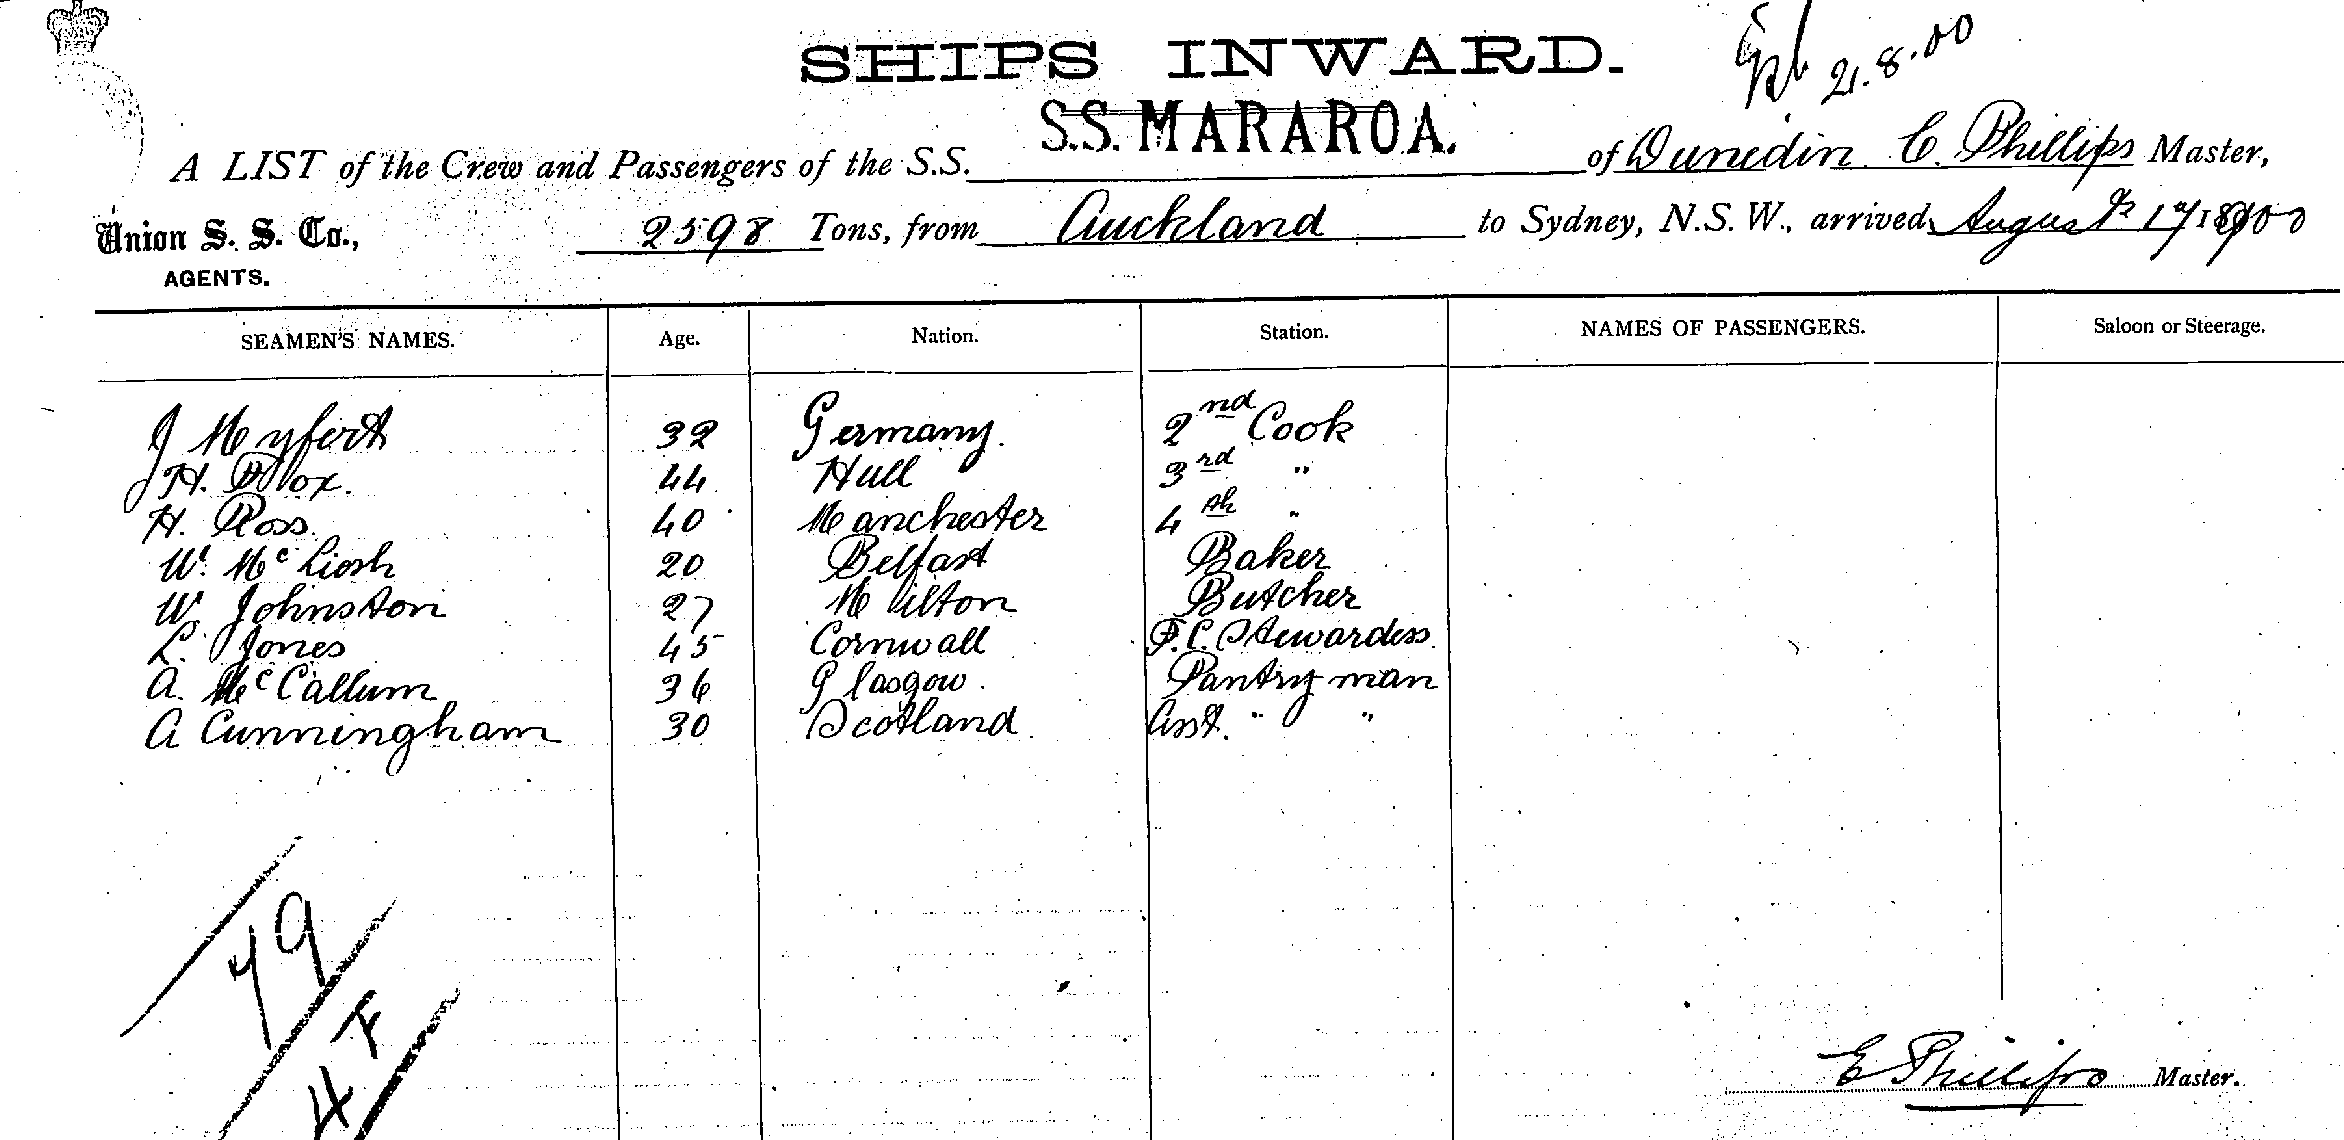 SHIPS INWARD.
21.8.00
S.S. MARAROA.
A LIST of the Crew and Passengers of the S.S. of Dunedin C. Phillips Master,
Union S. S. Co., 2598 Tons, from Auckland to Sydney, N.S.W., arrived August 1900
AGENTS.
SEAMEN'S NAMES. Age. Nation. Station. NAMES OF PASSENGERS. Saloon or Steerage.
J Meyfert 32 Germany. 2nd Cook
H. 44 Hull 3rd "
H. Ross 40 Manchester 4th "
W. 20 Belfast Baker
W. Johnston 27 Milton Butcher
L. Jones 45 Cornwall F.C. Stewardess
A. McCallum 36 Glasgow. Pantryman
A Cunningham 30 Scotland Asst. " "
79
4 F
E Phillips Master.